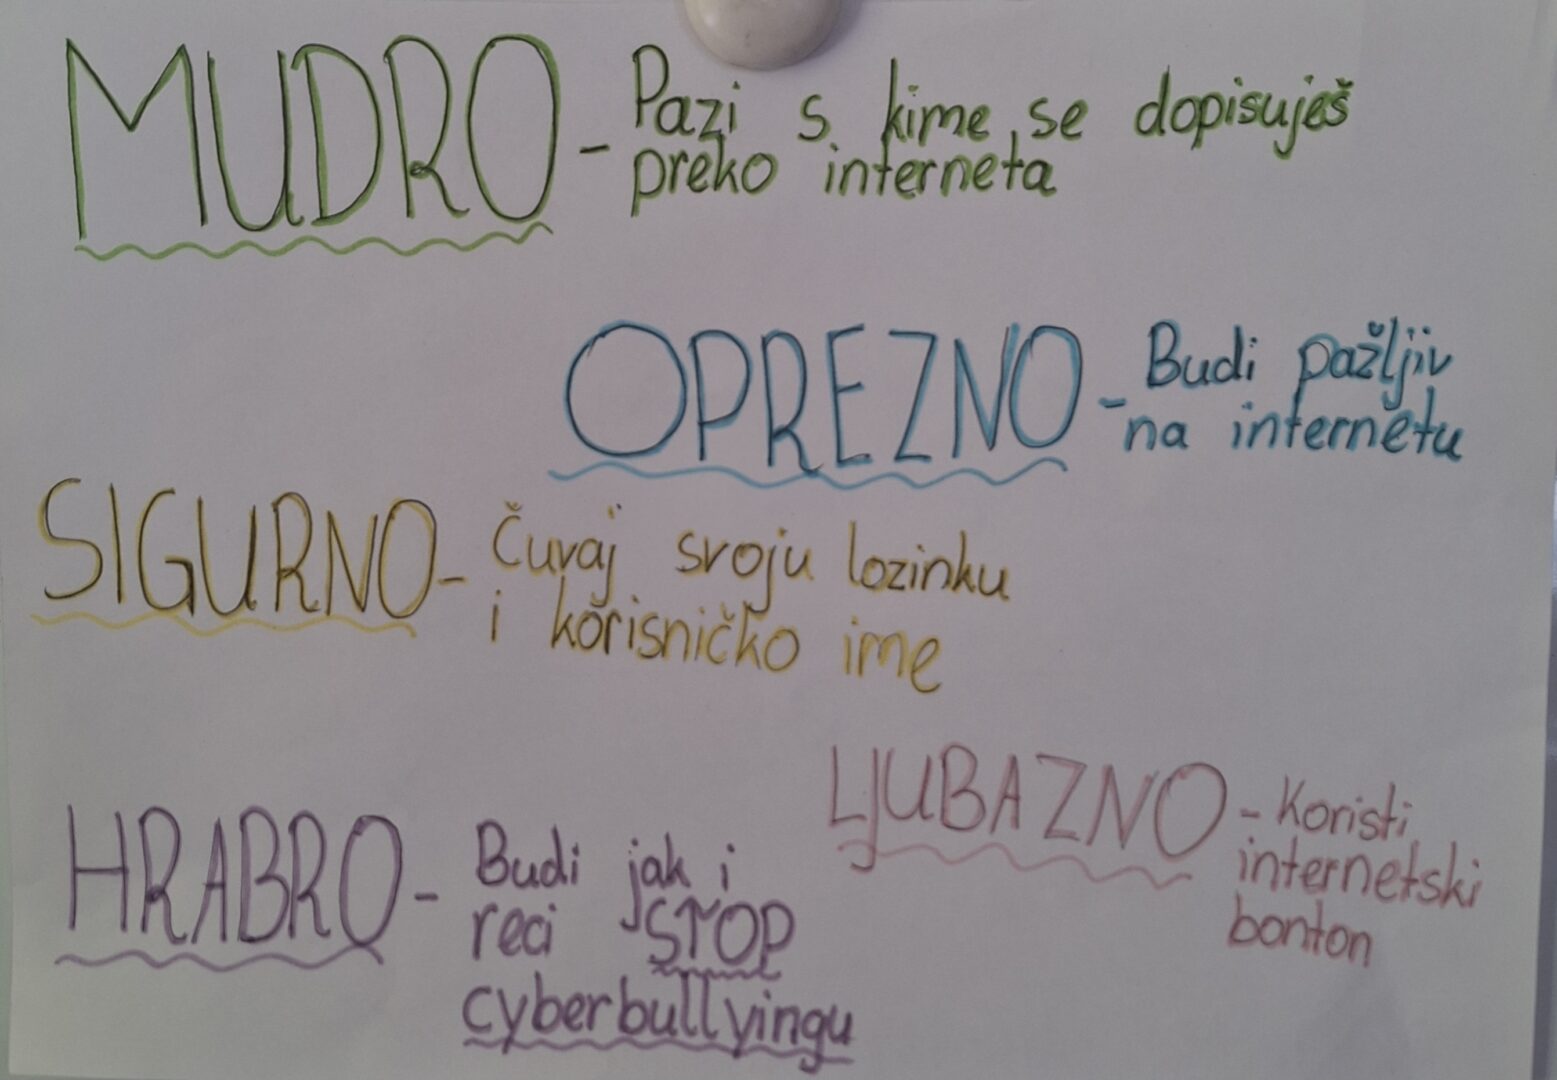 MUDRO - Pazi s kime se dopisuješ
preko interneta
OPREZNO - Budi pažljiv
na internetu
SIGURNO - Čuvaj svoju lozinku
i korisničko ime
LJUBAZNO - Koristi
internetski
bonton
HRABRO - Budi jak i
reci STOP
cyberbullyingu